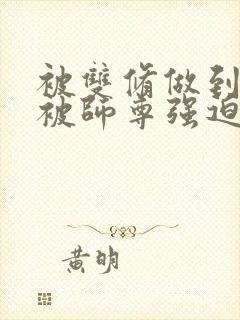 被雙脩做到
被師尊强迫
黃明